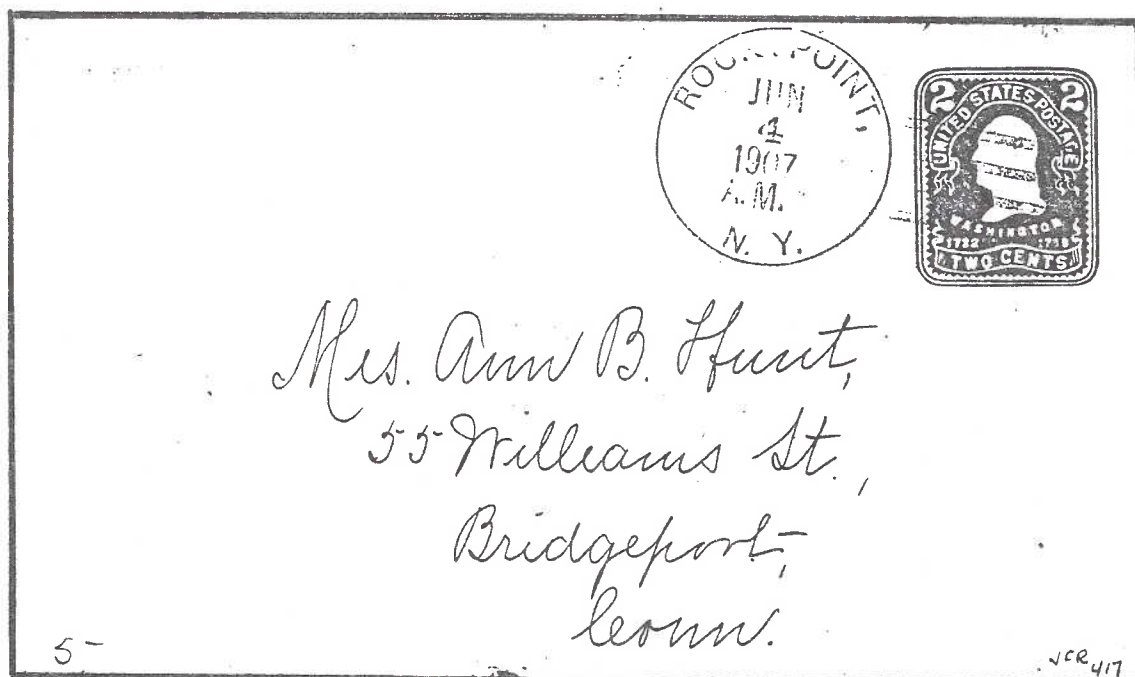 ROCKY POINT,
JUN
4
1907
A.M.
N. Y.
2 2
UNITED STATES POSTAGE
WASHINGTON
1732 1799
TWO CENTS
Mrs. Ann B. Hunt,
55 Williams St.,
Bridgeport,
Conn.
5-
JCR 417